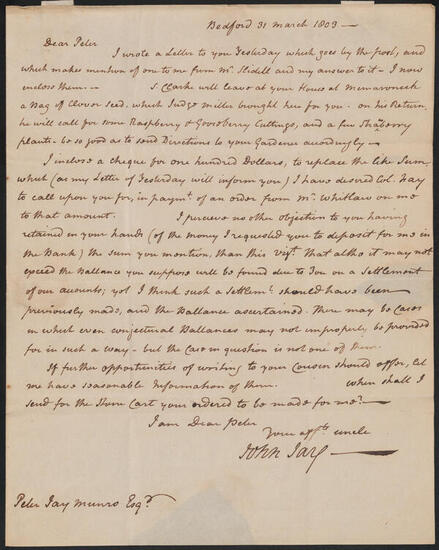 Bedford 31 March 1809 —
Dear Peter
I wrote a Letter to you Yesterday which goes by the post, and
which makes mention of one to me from Mr. Slidell and my answer to it – I now
enclose them. — S. Clarke will leave at your House at Mamaroneck
a Bag of Clover Seed, which Judge Miller brought here for you - on his Return,
he will call for some Raspberry & Gooseberry Cuttings, and a few Strawberry
plants – be so good as to send Directions to your Gardener accordingly —
I inclose a cheque for one hundred Dollars, to replace the like Sum,
which (as my Letter of Yesterday will inform you) I have desired Col. Hay
to call upon you for, in paymt. of an order from Mr. Whitlaw on me
to that amount. I perceive no other objection to you having
retained in your hands (of the money I requested you to deposit for me in
the Bank) the sum you mention, than this vizt. that altho it may not
exceed the Ballance you suppose will be found due to You on a Settlement
of our accounts; yet I think such a Settlemt. should have been
previously made, and the Ballance ascertained. There may be Cases
in which even conjectural Ballances may not improperly be provided
for in such a way – but the Case in question is not one of them.
If further opportunities of writing to your Cousin should offer, let
me have seasonable Information of them. when shall I
send for the Stone Cart you ordered to be made for me? —
I am Dear Peter
Your affte. uncle
John Jay —
Peter Jay Munro Esqr.